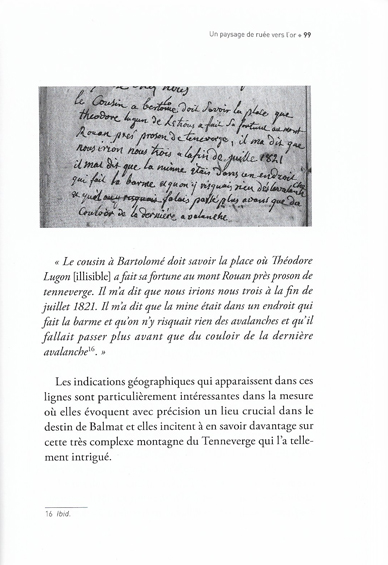 Un paysage de ruée vers l'or • 99
le Cousin a bertome doit Savoir la place que
theodore lugon de a fait Sa fortune au mont
Rouan pres proson de teneverge, il ma dit que
nous irion nous trois a la fin de juillet 1821
il mat dit que la minne etais dans un endroit
qui fait la barme et quon y risquait rien des avalanche
falais passer plus avant que du
Couloir de la derniere avalanche
« Le cousin à Bartolomé doit savoir la place où Théodore
Lugon [illisible] a fait sa fortune au mont Rouan près proson de
tenneverge. Il m'a dit que nous irions nous trois à la fin de
juillet 1821. Il m'a dit que la mine était dans un endroit qui
fait la barme et qu'on n'y risquait rien des avalanches et qu'il
fallait passer plus avant que du couloir de la dernière
avalanche16. »
Les indications géographiques qui apparaissent dans ces
lignes sont particulièrement intéressantes dans la mesure
où elles évoquent avec précision un lieu crucial dans le
destin de Balmat et elles incitent à en savoir davantage sur
cette très complexe montagne du Tenneverge qui l'a telle-
ment intrigué.
16 Ibid.